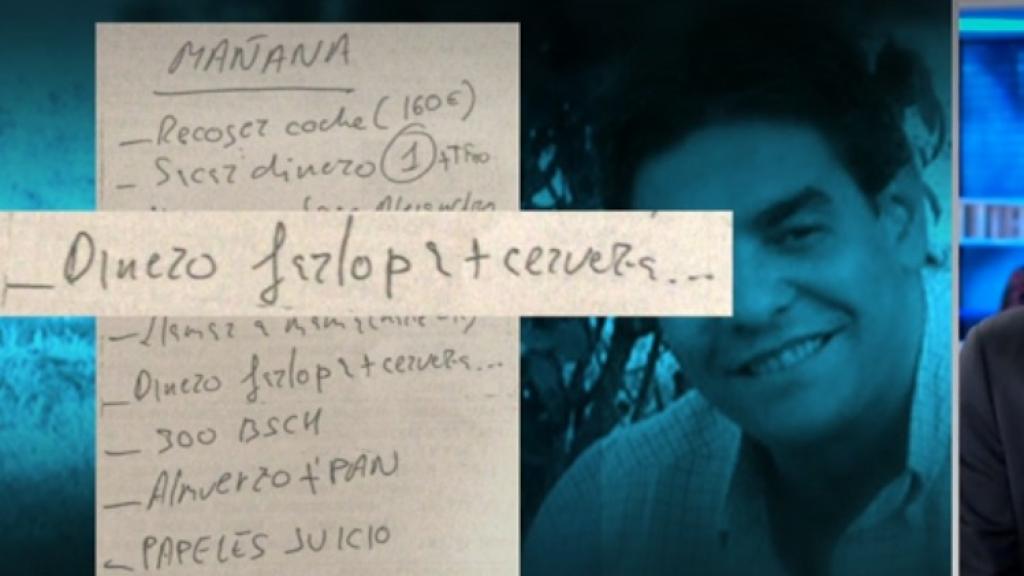 MAÑANA
_Recoger coche (160€)
_ Sacar dinero (1)
_ Dinero farlopa + cerveza...
_ Llamar a
_ Dinero farlopa + cerveza...
_ 300 BSCH
_ Almuerzo + PAN
_ PAPELES JUICIO